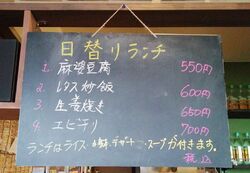 日替りランチ
1. 麻婆豆腐 550円
2. レタス炒飯 600円
3. 生姜焼き 650円
4. エビチリ 700円
ランチはライス デザート・スープが付きます。
税込